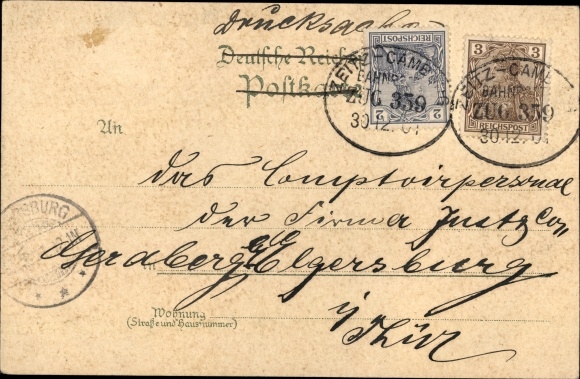 Drucksache
Deutsche Reich
Postka
2
REICHSPOST
2
3
REICHSPOST
ZEITZ-CAMB
BAHNPO
ZUG 359
30.12.01
ZEITZ-CAMB
BAHNPO
ZUG 359
30.12.01
An
das Comptoirpersonal
der Firma Justz Co,
in Elgersburg
i/ Thür
RSBURG
Wohnung
(Straße und Hausnummer)